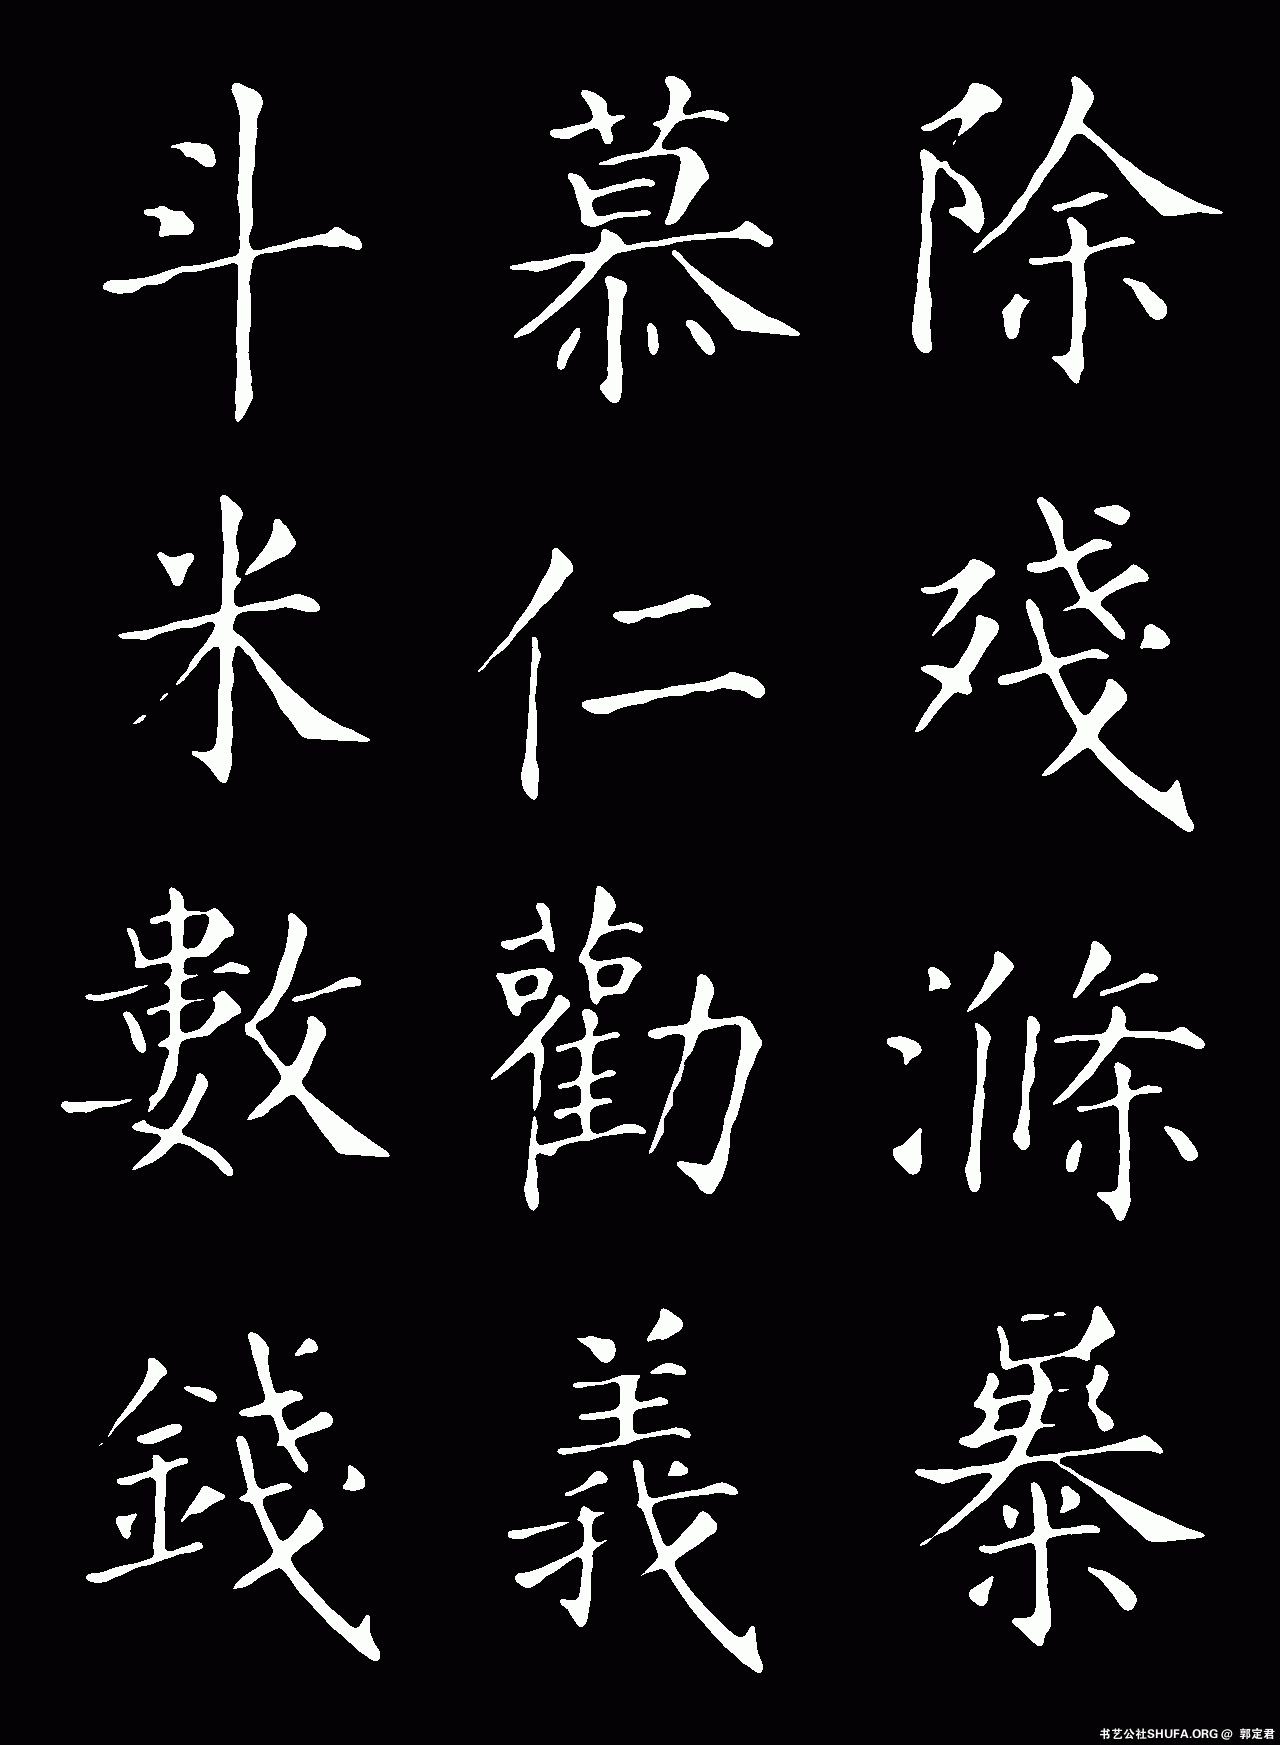 除殘滌暴
慕仁勸義
斗米數錢
书艺公社SHUFA.ORG @ 郭定君